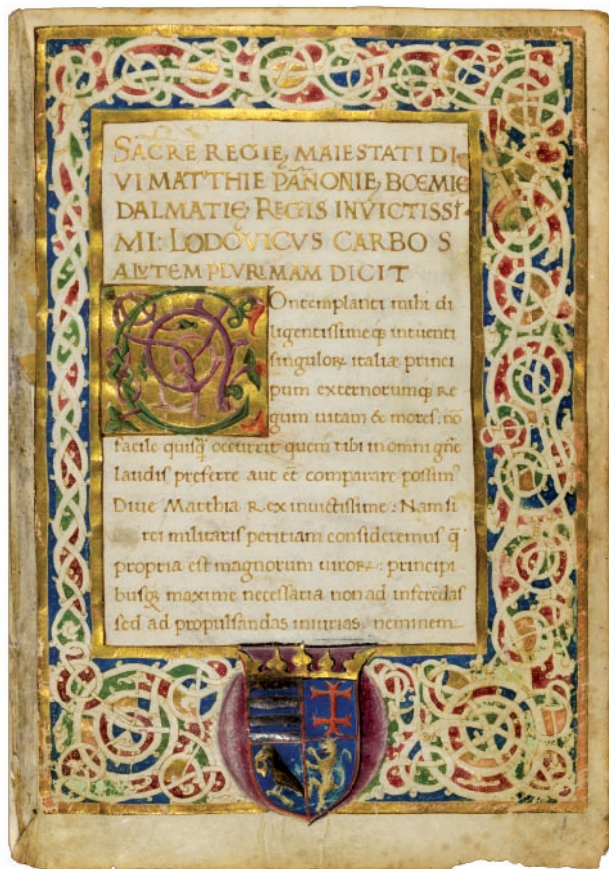 SACRE REGIE, MAIESTATI DI
VI MATTHIE PAÑONIE, BOEMIE
DALMATIE, REGIS INVICTISSI
MI: LODOVICVS CARBO S
ALVTEM PLVRIMAM DICIT
COntemplanti mihi di
ligentissimeq; intuenti
singuloꝝ italiæ princi
pum externorumq; re
gum uitam & mores: nō
facile quisq̄ occurrit quem tibi in omni gñe
laudis preferre aut et̄ comparare possim?
Diue Matthia Rex inuictissime: Nam si
rei militaris peritiam consideremus q̄
propria est magnorum uiroꝝ: principi
busq; maxime necessaria non ad inferēdas
sed ad propulsandas iniurias, neminem